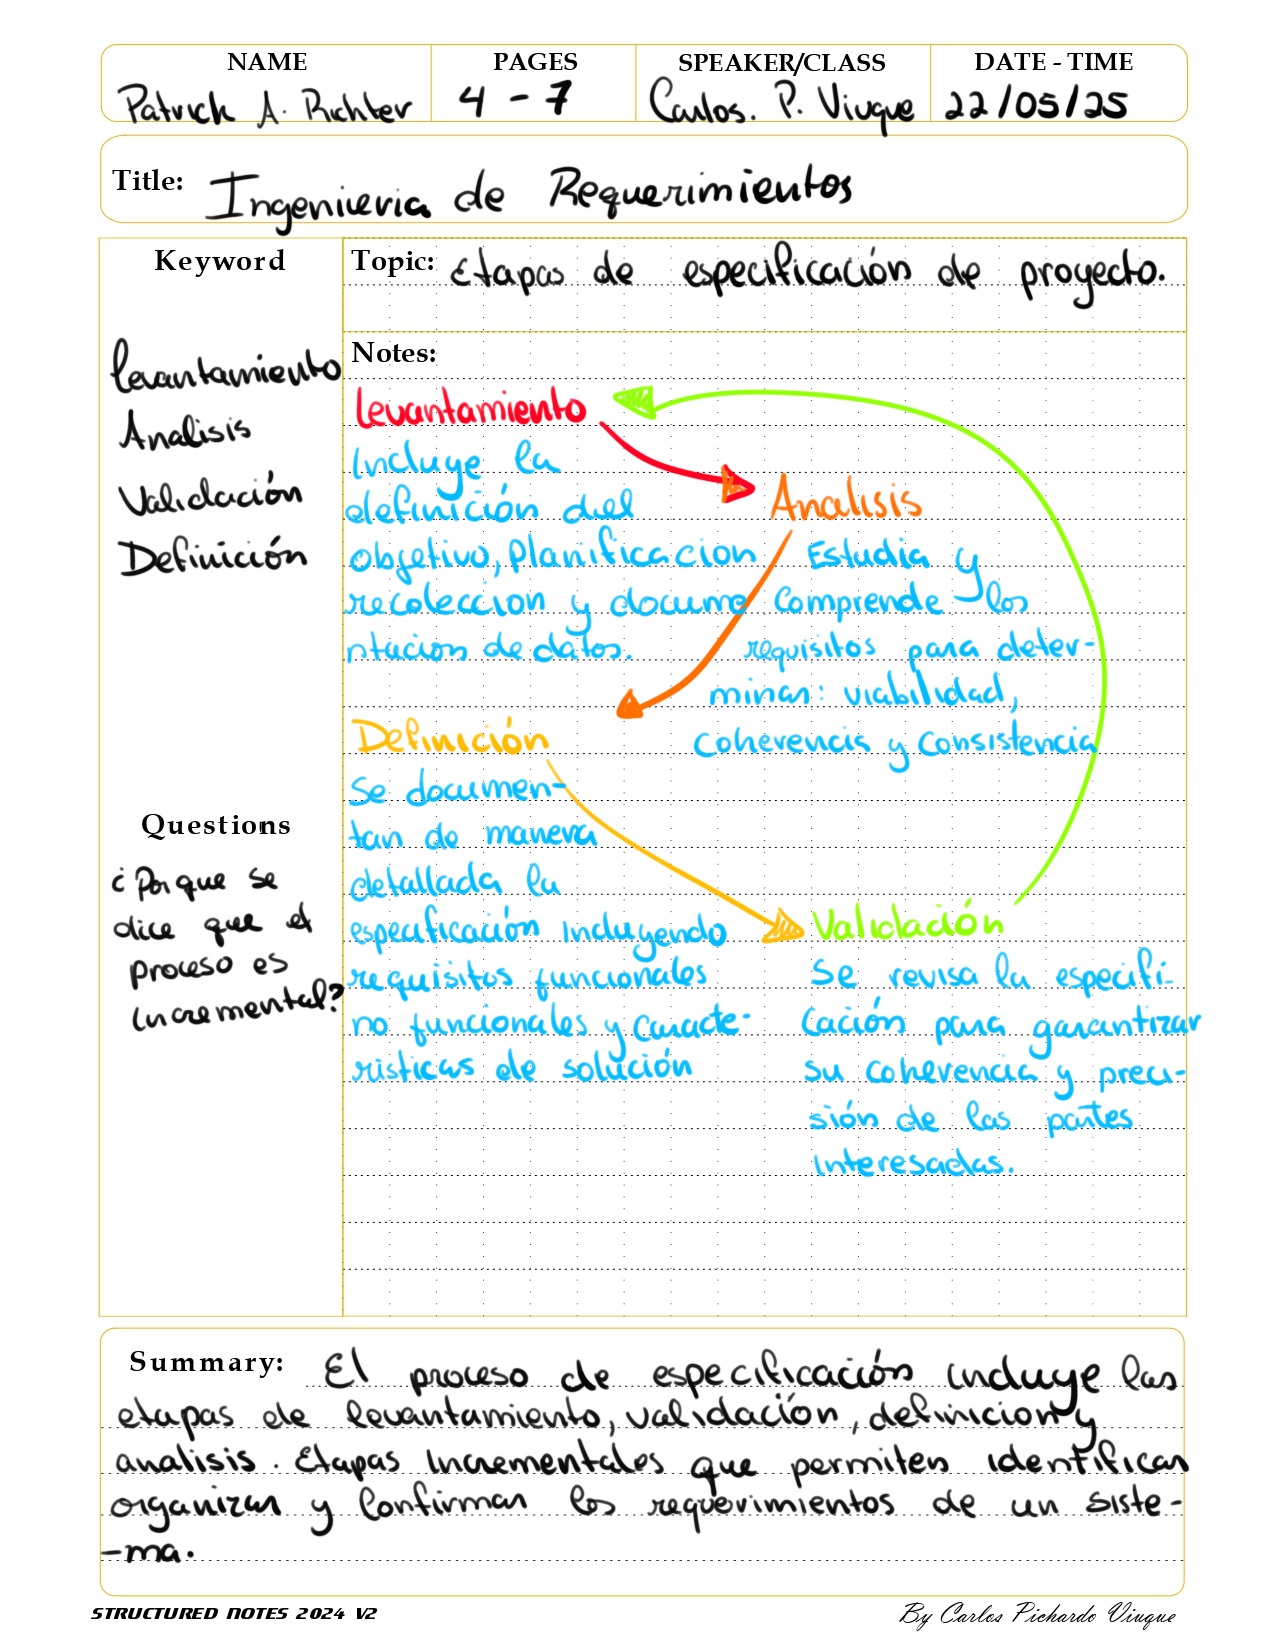 NAME PAGES SPEAKER/CLASS DATE - TIME
Patrick A. Richter 4 - 7 Carlos. P. Viuque 22/05/25
Title: Ingenieria de Requerimientos
Keyword
Levantamiento
Analisis
Validación
Definición
Questions
¿Porque se
dice que el
proceso es
incremental?
Topic: Etapas de especificación de proyecto.
Notes:
Levantamiento
Incluye la
definición del
objetivo, planificacion
recoleccion y docume
ntacion de datos.
Analisis
Estudia y
comprende los
requisitos para deter-
minar: viabilidad,
coherencia y consistencia
Definición
Se documen-
tan de manera
detallada la
especificación incluyendo
requisitos funcionales
no funcionales y caracte-
risticas de solución
Validación
Se revisa la especifi-
cación para garantizar
su coherencia y preci-
sión de las partes
interesadas.
Summary: El proceso de especificación incluye las
etapas de levantamiento, validación, definicion y
analisis. Etapas incrementales que permiten identificar
organizar y confirmar los requerimientos de un siste-
-ma.
STRUCTURED NOTES 2024 V2
By Carlos Pichardo Viuque